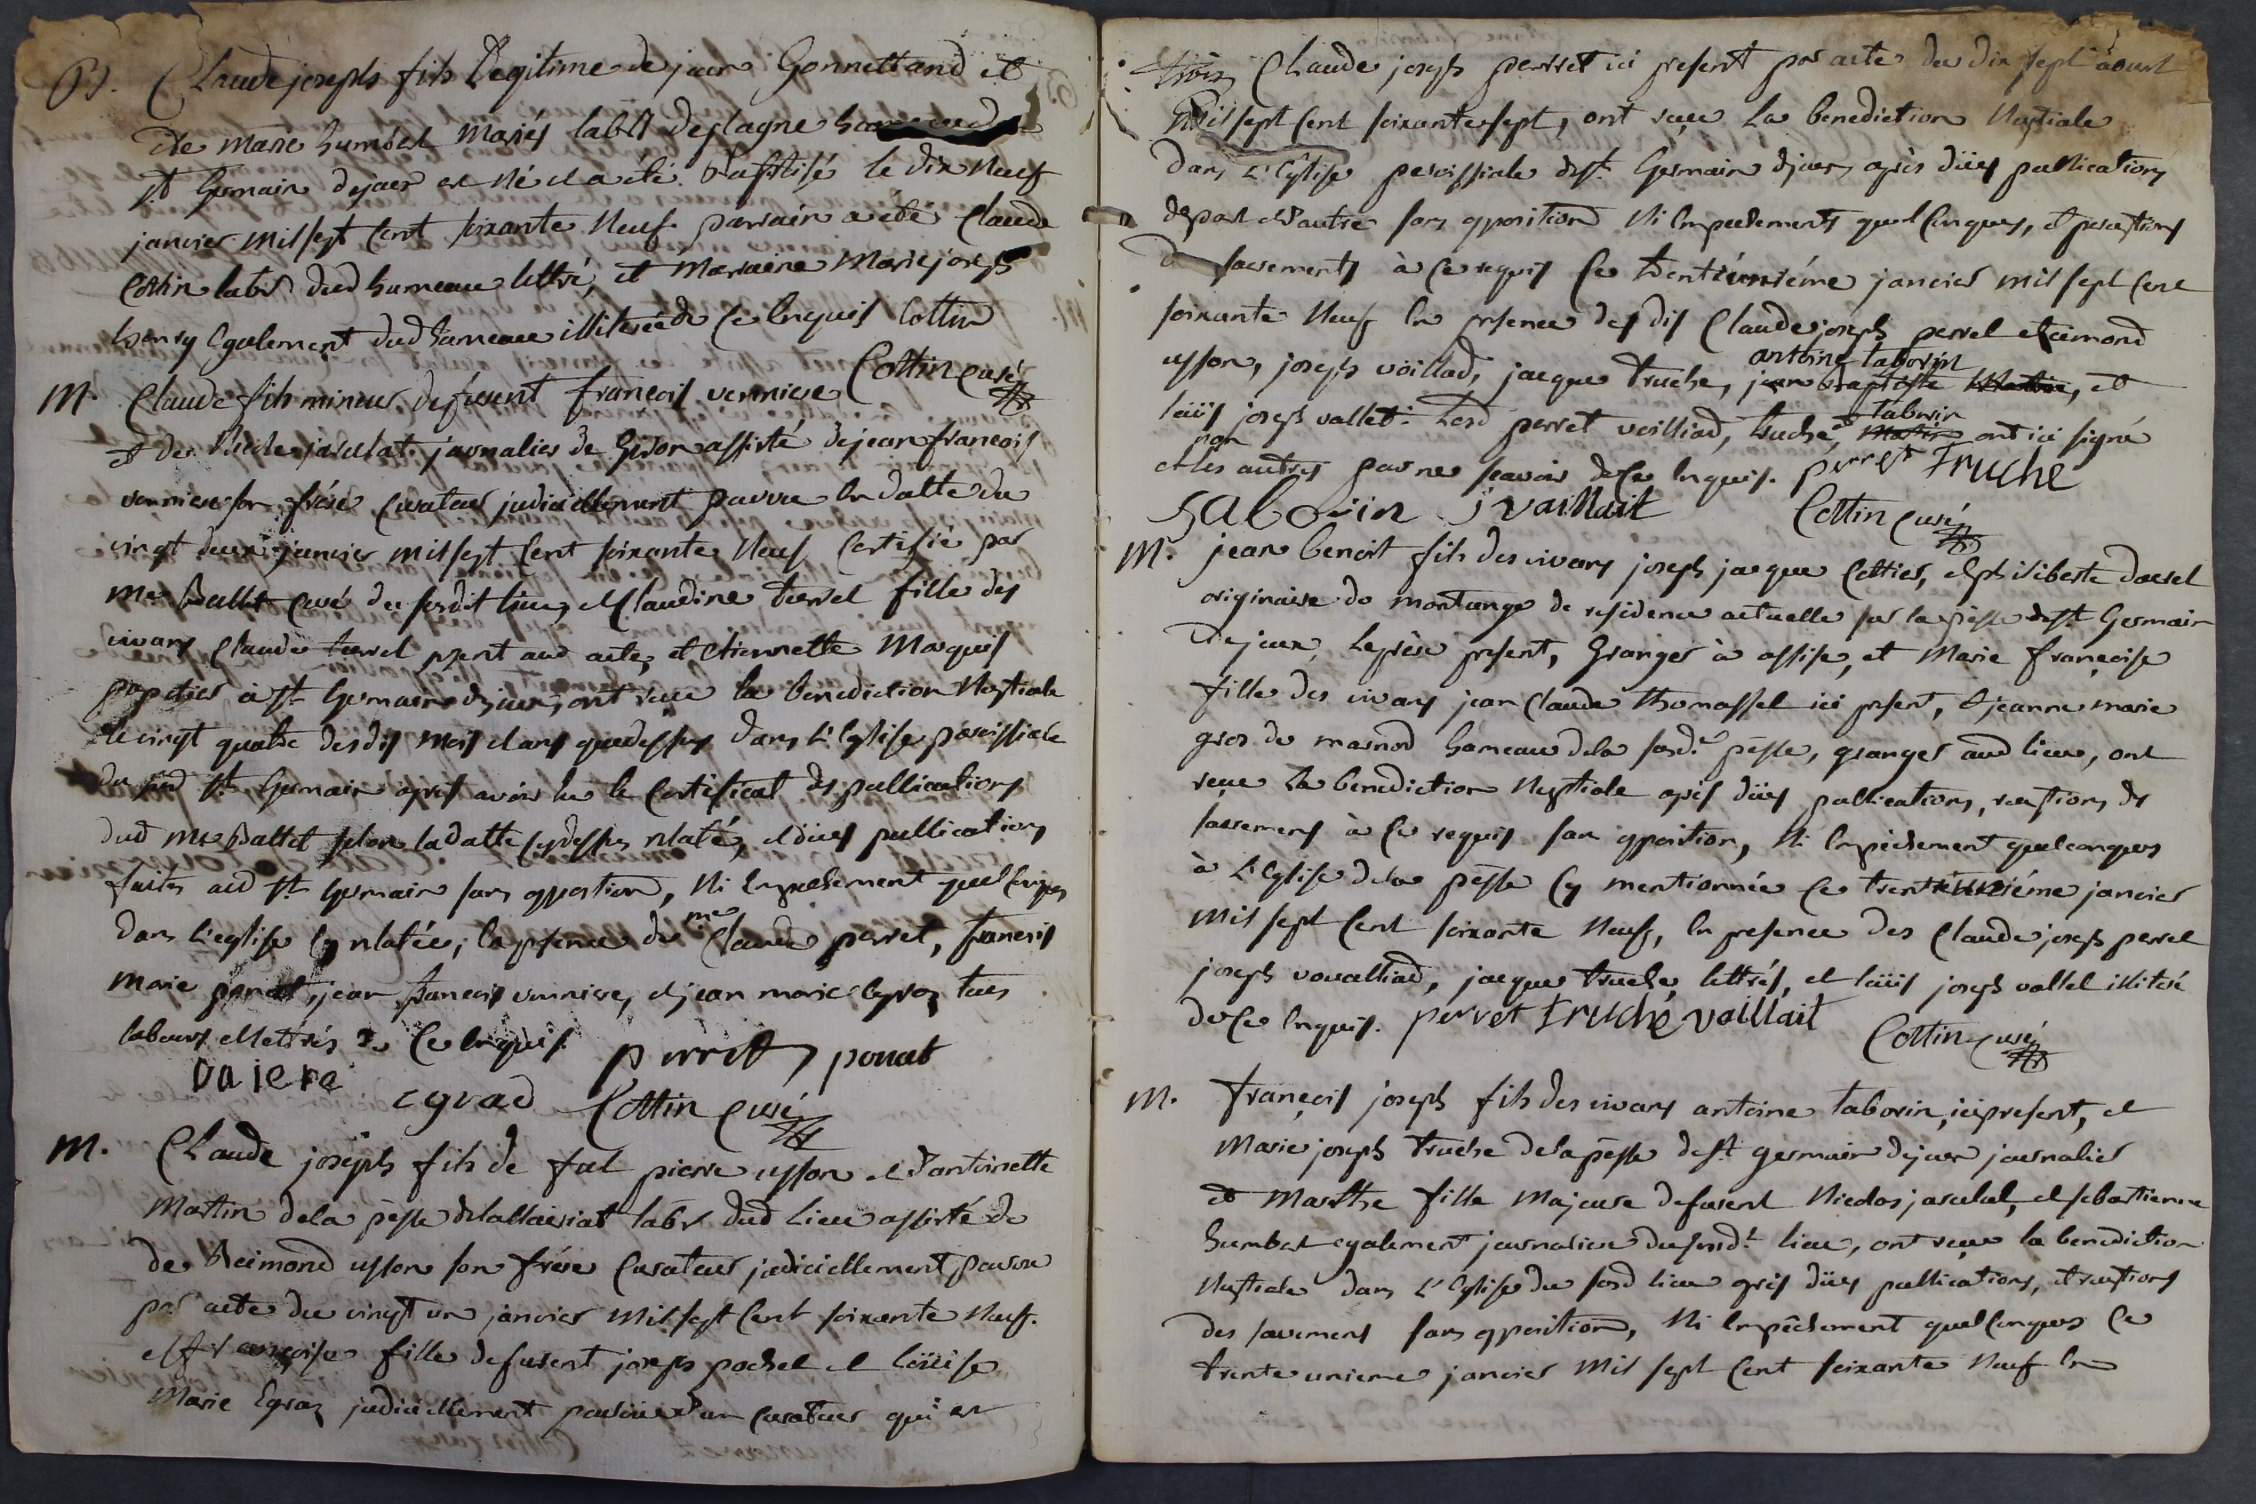 B. Claude joseph fils Legitime de jean Gonnettand et
de marie humbert mariés labrs deslagne hameau de
st Germain dejoux est né et a été baptisé le dix neuf
janvier mil sept cent soixante neuf parrain a eté Claude
Cottin labr dud hameau lettré, et marraine marie joseph
henry egalement dud hameau illiterée de ce enquis Cottin
Cottin curé
M. Claude fils mineur defeusent françois verniere
et de jasselat journalier de Giron assisté de jean françois
verniere son frére curateur judiciellement pourvu en datte du
vingt deux janvier mil sept cent soixante neuf certifié par
mre Ballet curé du susdit lieu, et Claudine turrel fille des
vivans Claude turrel pzent aud acte, et etiennette marquis
papetier à st Germain dejoux, ont reçue la benediction nuptiale
le vingt quatre des dis mois et ans quedessus dans l'Eglise paroissiale
du sud st Germain après avoir lu le certificat des publications
dud mre Ballet selon la datte cy dessus relaté, et düës publications
faites aud st Germain sans opposition, ni empechement quelconques
dans l'eglise cy relatée, en psence de me Claude perret, françois
marie ponat, jean françois verniere, et jean marie Egraz tous
labours et lettrés de ce enquis.
perret ponat
vaiere egrad Cottin curé
M. Claude joseph fils de feat pierre usson et d'antoinette
Martin dela pesse delallairiat labr dud Lieu assisté de
de Reimond usson son frére curateur judiciellement pourvu
par acte du vingt un janvier mil sept cent soixante neuf.
et françoise fille defeusent joseph pochet et loüise
Marie Egraz judiciellement pourüe d'un curateur qui est
Claude joseph perret ici present par acte du dix sept aoust
mil sept cent soixante sept, ont reçue la benediction nuptiale
dans l'Eglise paroissiale de st Germain dejoux après düës publications
de part et d'autre sans opposition ni empechements quelconques, et perceptions
de sacrements à ce requis ce trentiunième janvier mil sept cent
soixante neuf en presence des dis Claude joseph perret et reimond
usson, joseph voillad, jacque truche, jean baptiste martin, et
antoine taborin
loüis joseph vallet. Lesd perret voilliad, truche, martin ont ici signé
taborin
non
et les autres pour ne scavoir de ce enquis. perret truche
tabouin j vaillait Cottin curé
M. jean benoit fils des vivans joseph jacque Cottier, et philiberte
originaire de montange de residence actuelle sur la pesse de st Germain
dejoux, le père present, Granger à assise, et Marie françoise
fille des vivans jean Claude thomasset ici present, et jeanne marie
gros de marnod hameau dela susd.e pesse, granger aud lieu, ont
reçue la benediction nuptiale après düës publications, receptions de
sacremens à ce requis sans opposition, ni empechement quelconques
à l'Eglise dela pesse cy mentionnée ce trentiunième janvier
mil sept cent soixante neuf, en presence des Claude joseph perret
joseph vouaillad, jacque truche, lettrés, et loüis joseph vallet illiteré
de ce enquis. perret truche voillait
Cottin curé
M. françois joseph fils des vivans antoine taborin, ici present, et
Marie joseph truche dela pesse de st germain dejoux journalier
et Marthe fille majeure defeusent Nicolas jasselat, et sebastienne
humbert egalement journaliere dususd.t lieu, ont reçue la benediction
nuptiale dans l'Eglise du susd lieu après düës publications, et receptions
des sacremens sans opposition, ni empêchement quelconques ce
trente unieme janvier mil sept cent soixante neuf en